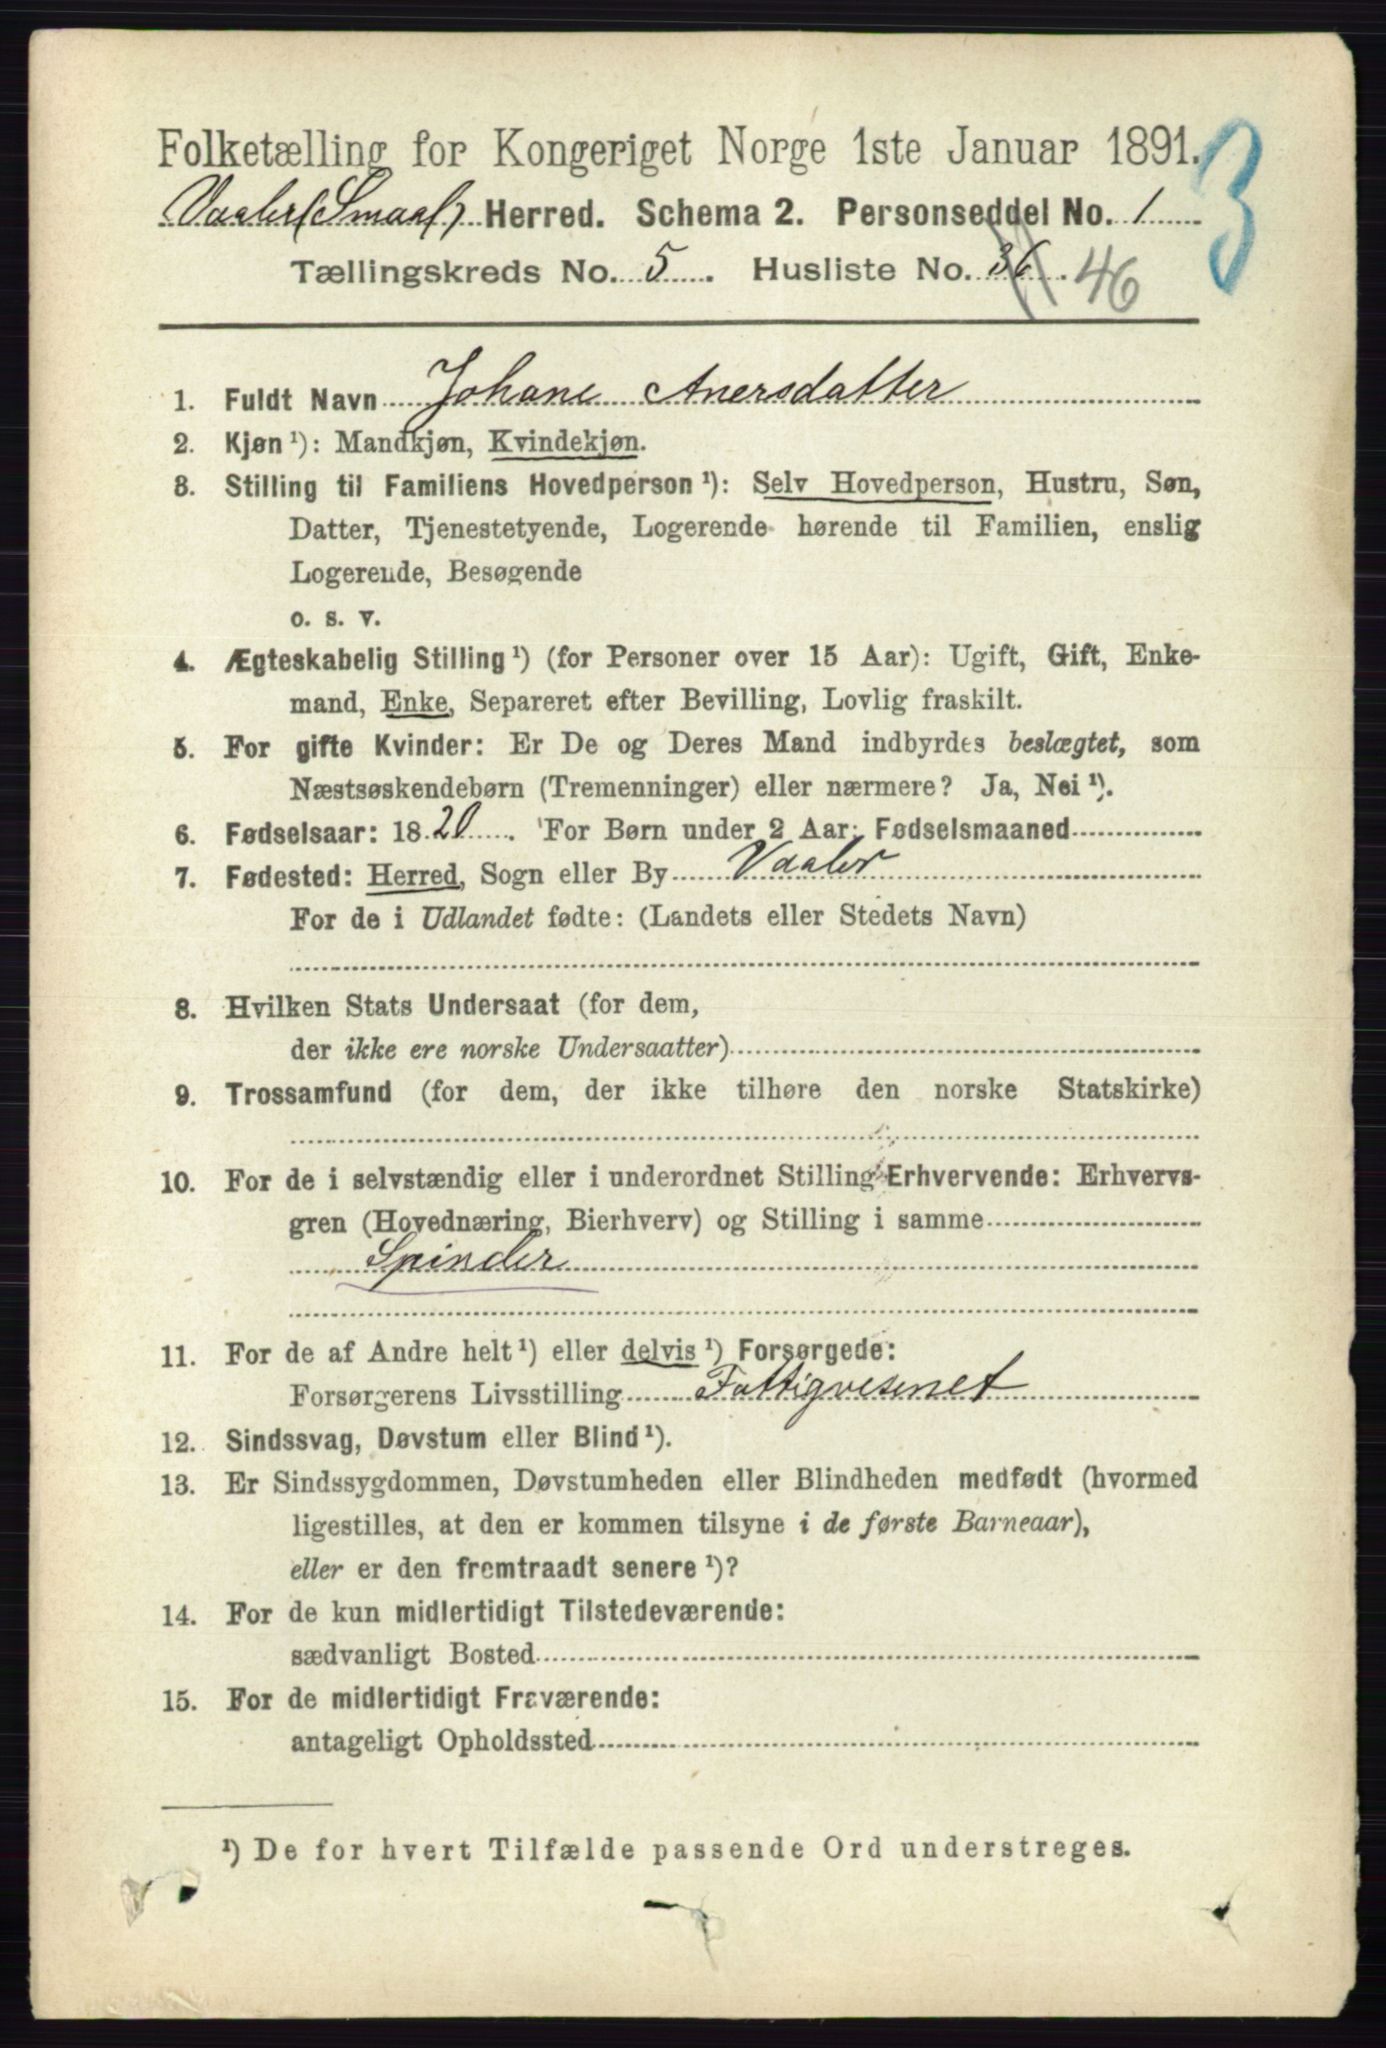 Folketælling for Kongeriget Norge 1ste Januar 1891.
3
Vaaler (Smaal) Herred. Schema 2. Personseddel No. 1
Tællingskreds No. 5. Husliste No. 36. 46
1. Fuldt Navn Johane Anersdatter
2. Kjøn ¹): Mandkjøn, Kvindekjøn.
3. Stilling til Familiens Hovedperson ¹): Selv Hovedperson, Hustru, Søn,
Datter, Tjenestetyende, Logerende hørende til Familien, enslig
Logerende, Besøgende
o. s. v.
4. Ægteskabelig Stilling ¹) (for Personer over 15 Aar): Ugift, Gift, Enke-
mand, Enke, Separeret efter Bevilling, Lovlig fraskilt.
5. For gifte Kvinder: Er De og Deres Mand indbyrdes beslægtet, som
Næstsøskendebørn (Tremenninger) eller nærmere? Ja, Nei ¹).
6. Fødselsaar: 1820. For Børn under 2 Aar: Fødselsmaaned
7. Fødested: Herred, Sogn eller By Vaaler
For de i Udlandet fødte: (Landets eller Stedets Navn)
8. Hvilken Stats Undersaat (for dem,
der ikke ere norske Undersaatter)
9. Trossamfund (for dem, der ikke tilhøre den norske Statskirke)
10. For de i selvstændig eller i underordnet Stilling Erhvervende: Erhvervs-
gren (Hovednæring, Bierhverv) og Stilling i samme
Spinder
11. For de af Andre helt ¹) eller delvis ¹) Forsørgede:
Forsørgerens Livsstilling Fattigvesenet
12. Sindssvag, Døvstum eller Blind ¹).
13. Er Sindssygdommen, Døvstumheden eller Blindheden medfødt (hvormed
ligestilles, at den er kommen tilsyne i de første Barneaar),
eller er den fremtraadt senere ¹)?
14. For de kun midlertidigt Tilstedeværende:
sædvanligt Bosted
15. For de midlertidigt Fraværende:
antageligt Opholdssted
¹) De for hvert Tilfælde passende Ord understreges.